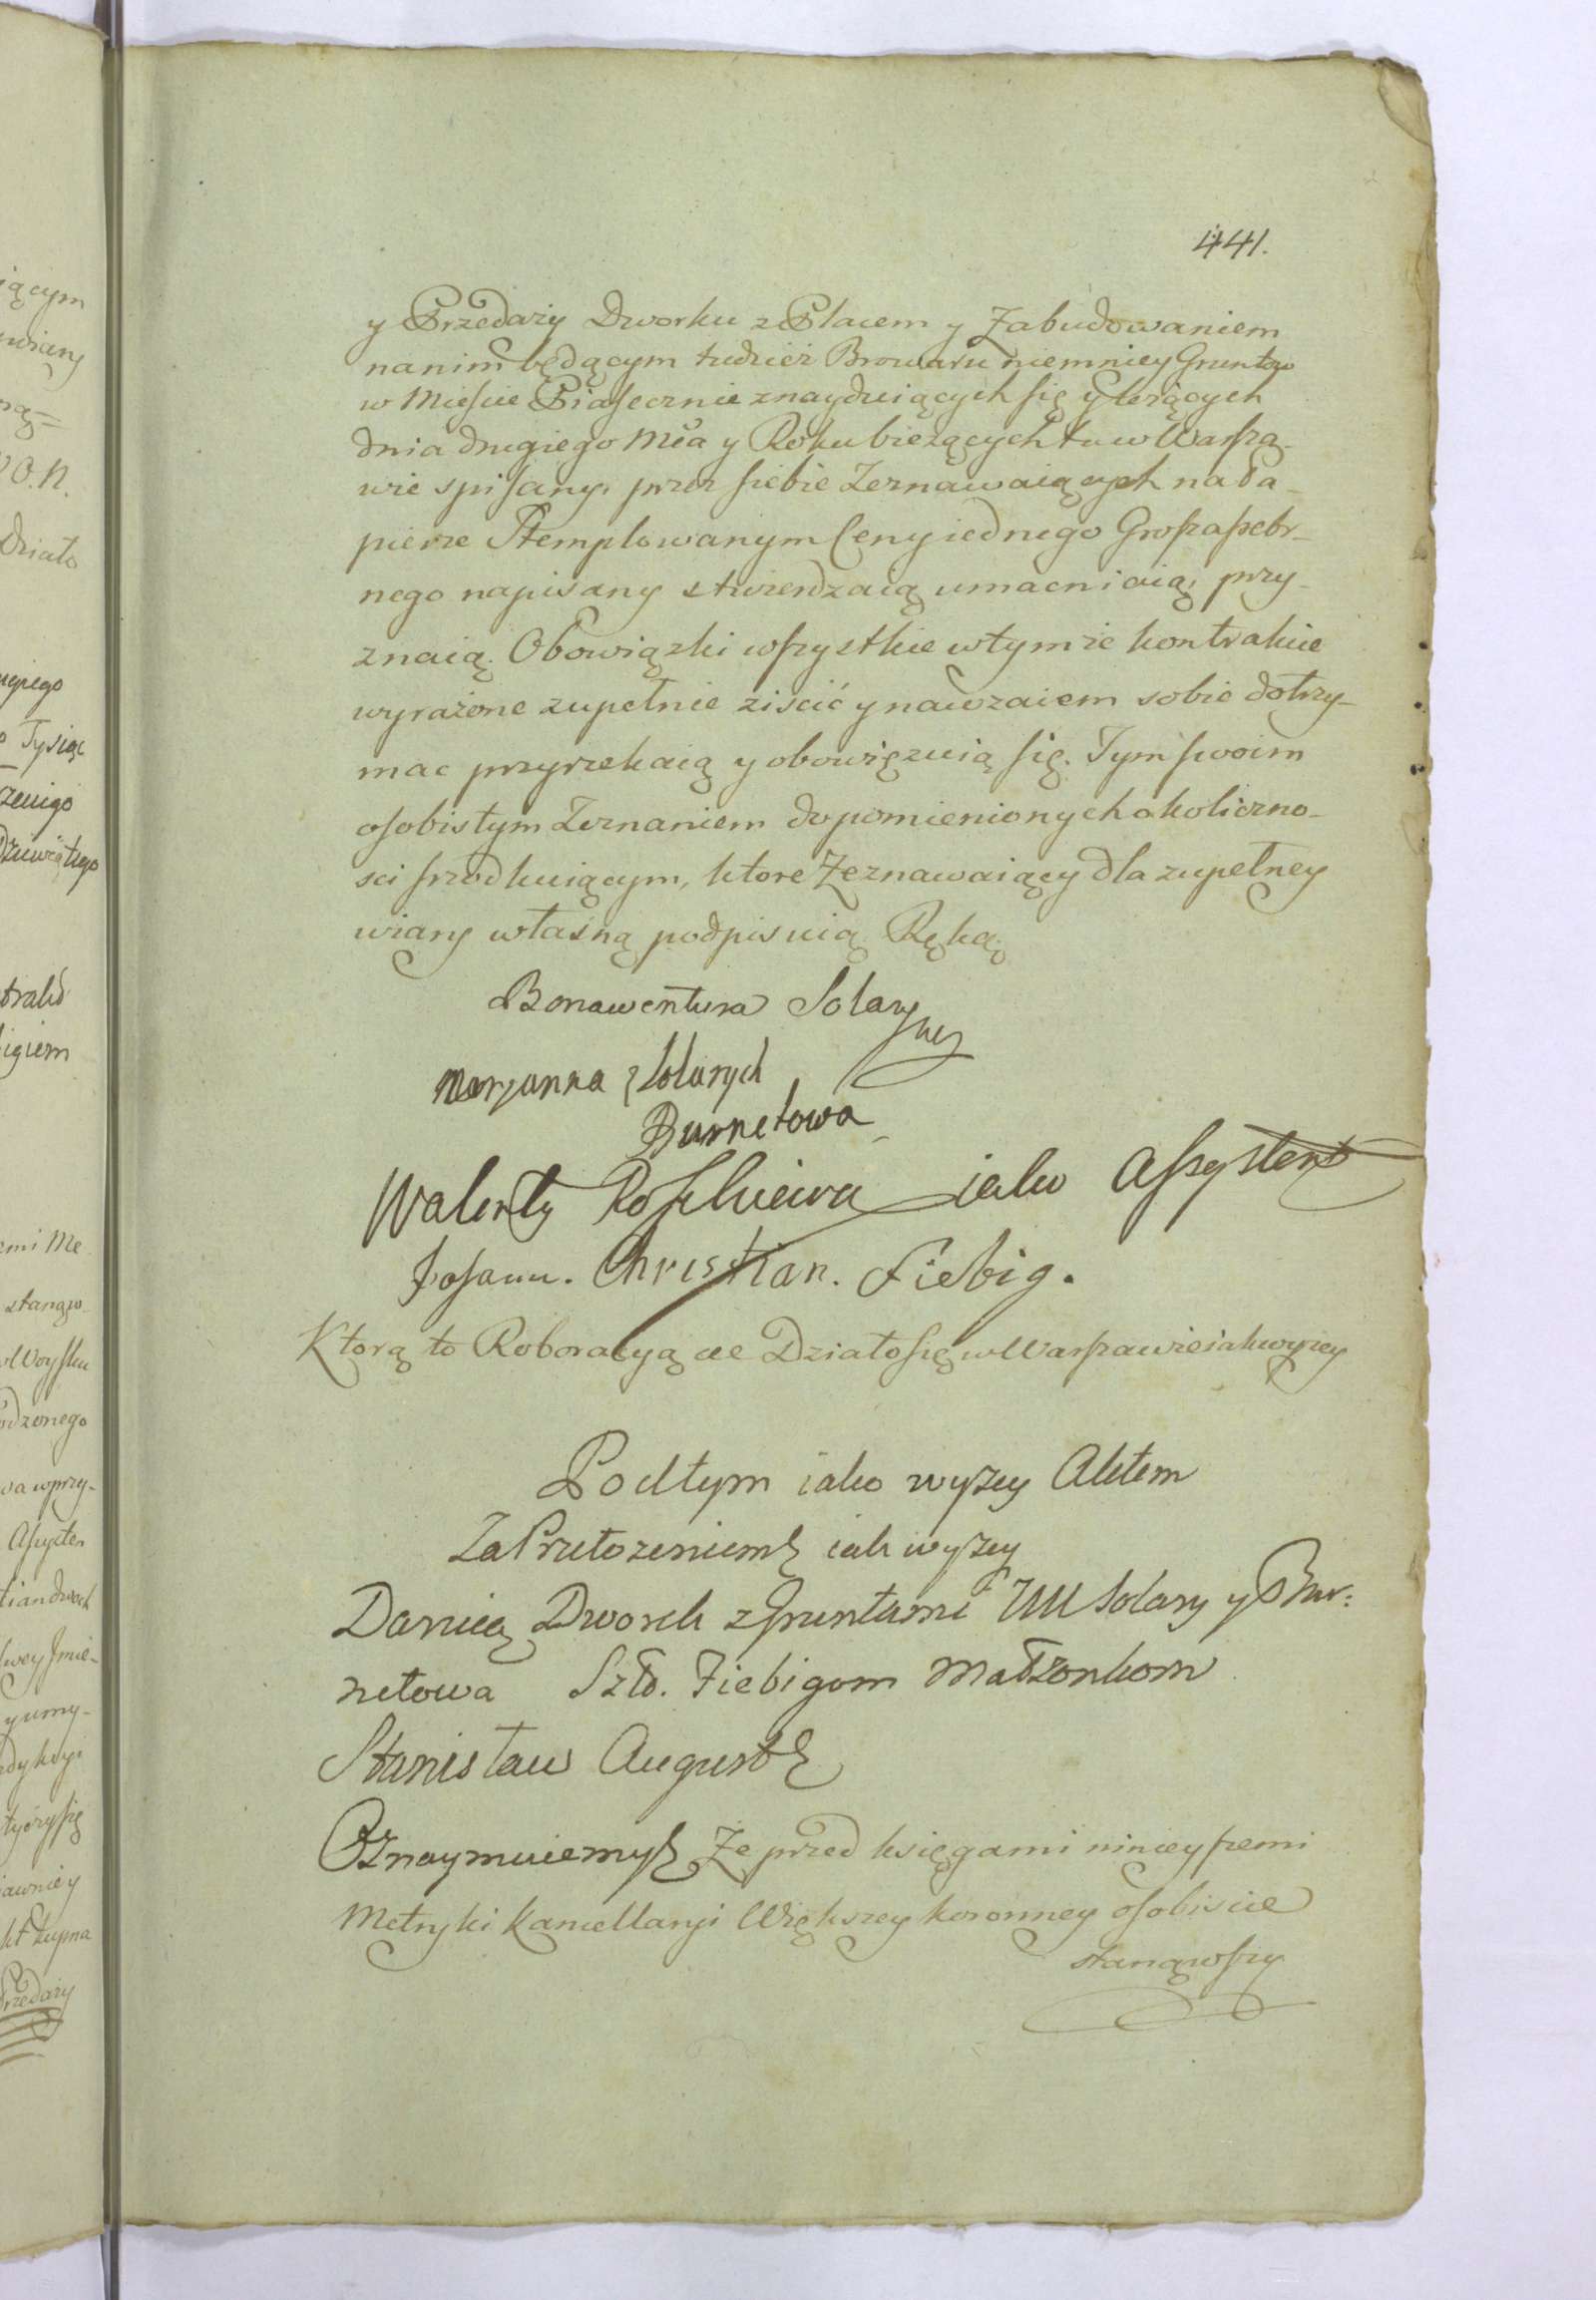 441.
y Przedaży Dworku z Placem y Zabudowaniem
na nim będącym tudzież Browaru niemniey Gruntow
w Mieście Piasecznie znayduiących się y leżących
dnia drugiego Mca y Roku bieżących tu w Warsza-
wie spisany, przez siebie Zeznawaiących na Pa-
pierze Stemplowanym Ceny iednego Grosza srebr-
nego napisany stwierdzaią umacniaią, przy-
znaią. Obowiązki wszystkie w tymże kontrakcie
wyrażone zupełnie ziścić y nawzaiem sobie dotrzy-
mac przyrzekaią y obowięzuią się. Tym swoim
osobistym Zeznaniem do pomienionych okoliczno-
sci srzodkuiącym, ktore Zeznawaiący dla zupełney
wiary własną podpisuią Ręką.
Bonawentura Solary
Maryanna z Solarych
Burnetowa
Walenty iako Assystent
Johann. Christian. Fiebig.
Ktorą to Roboracyą &c Działo się w Warszawie iak wyzey
Pod tym iako wyzey Aktem
Za Przełozeniem iak wyzey
Daruią Dworek z Gruntami UU Solary y Bur:
netowa Szł. Fiebigom Małzonkom
Stanisław August
Oznaymuiemy Że przed księgami ninieyszemi
Metryki Kancellaryi Większey koronney osobiscie
stanąwszy